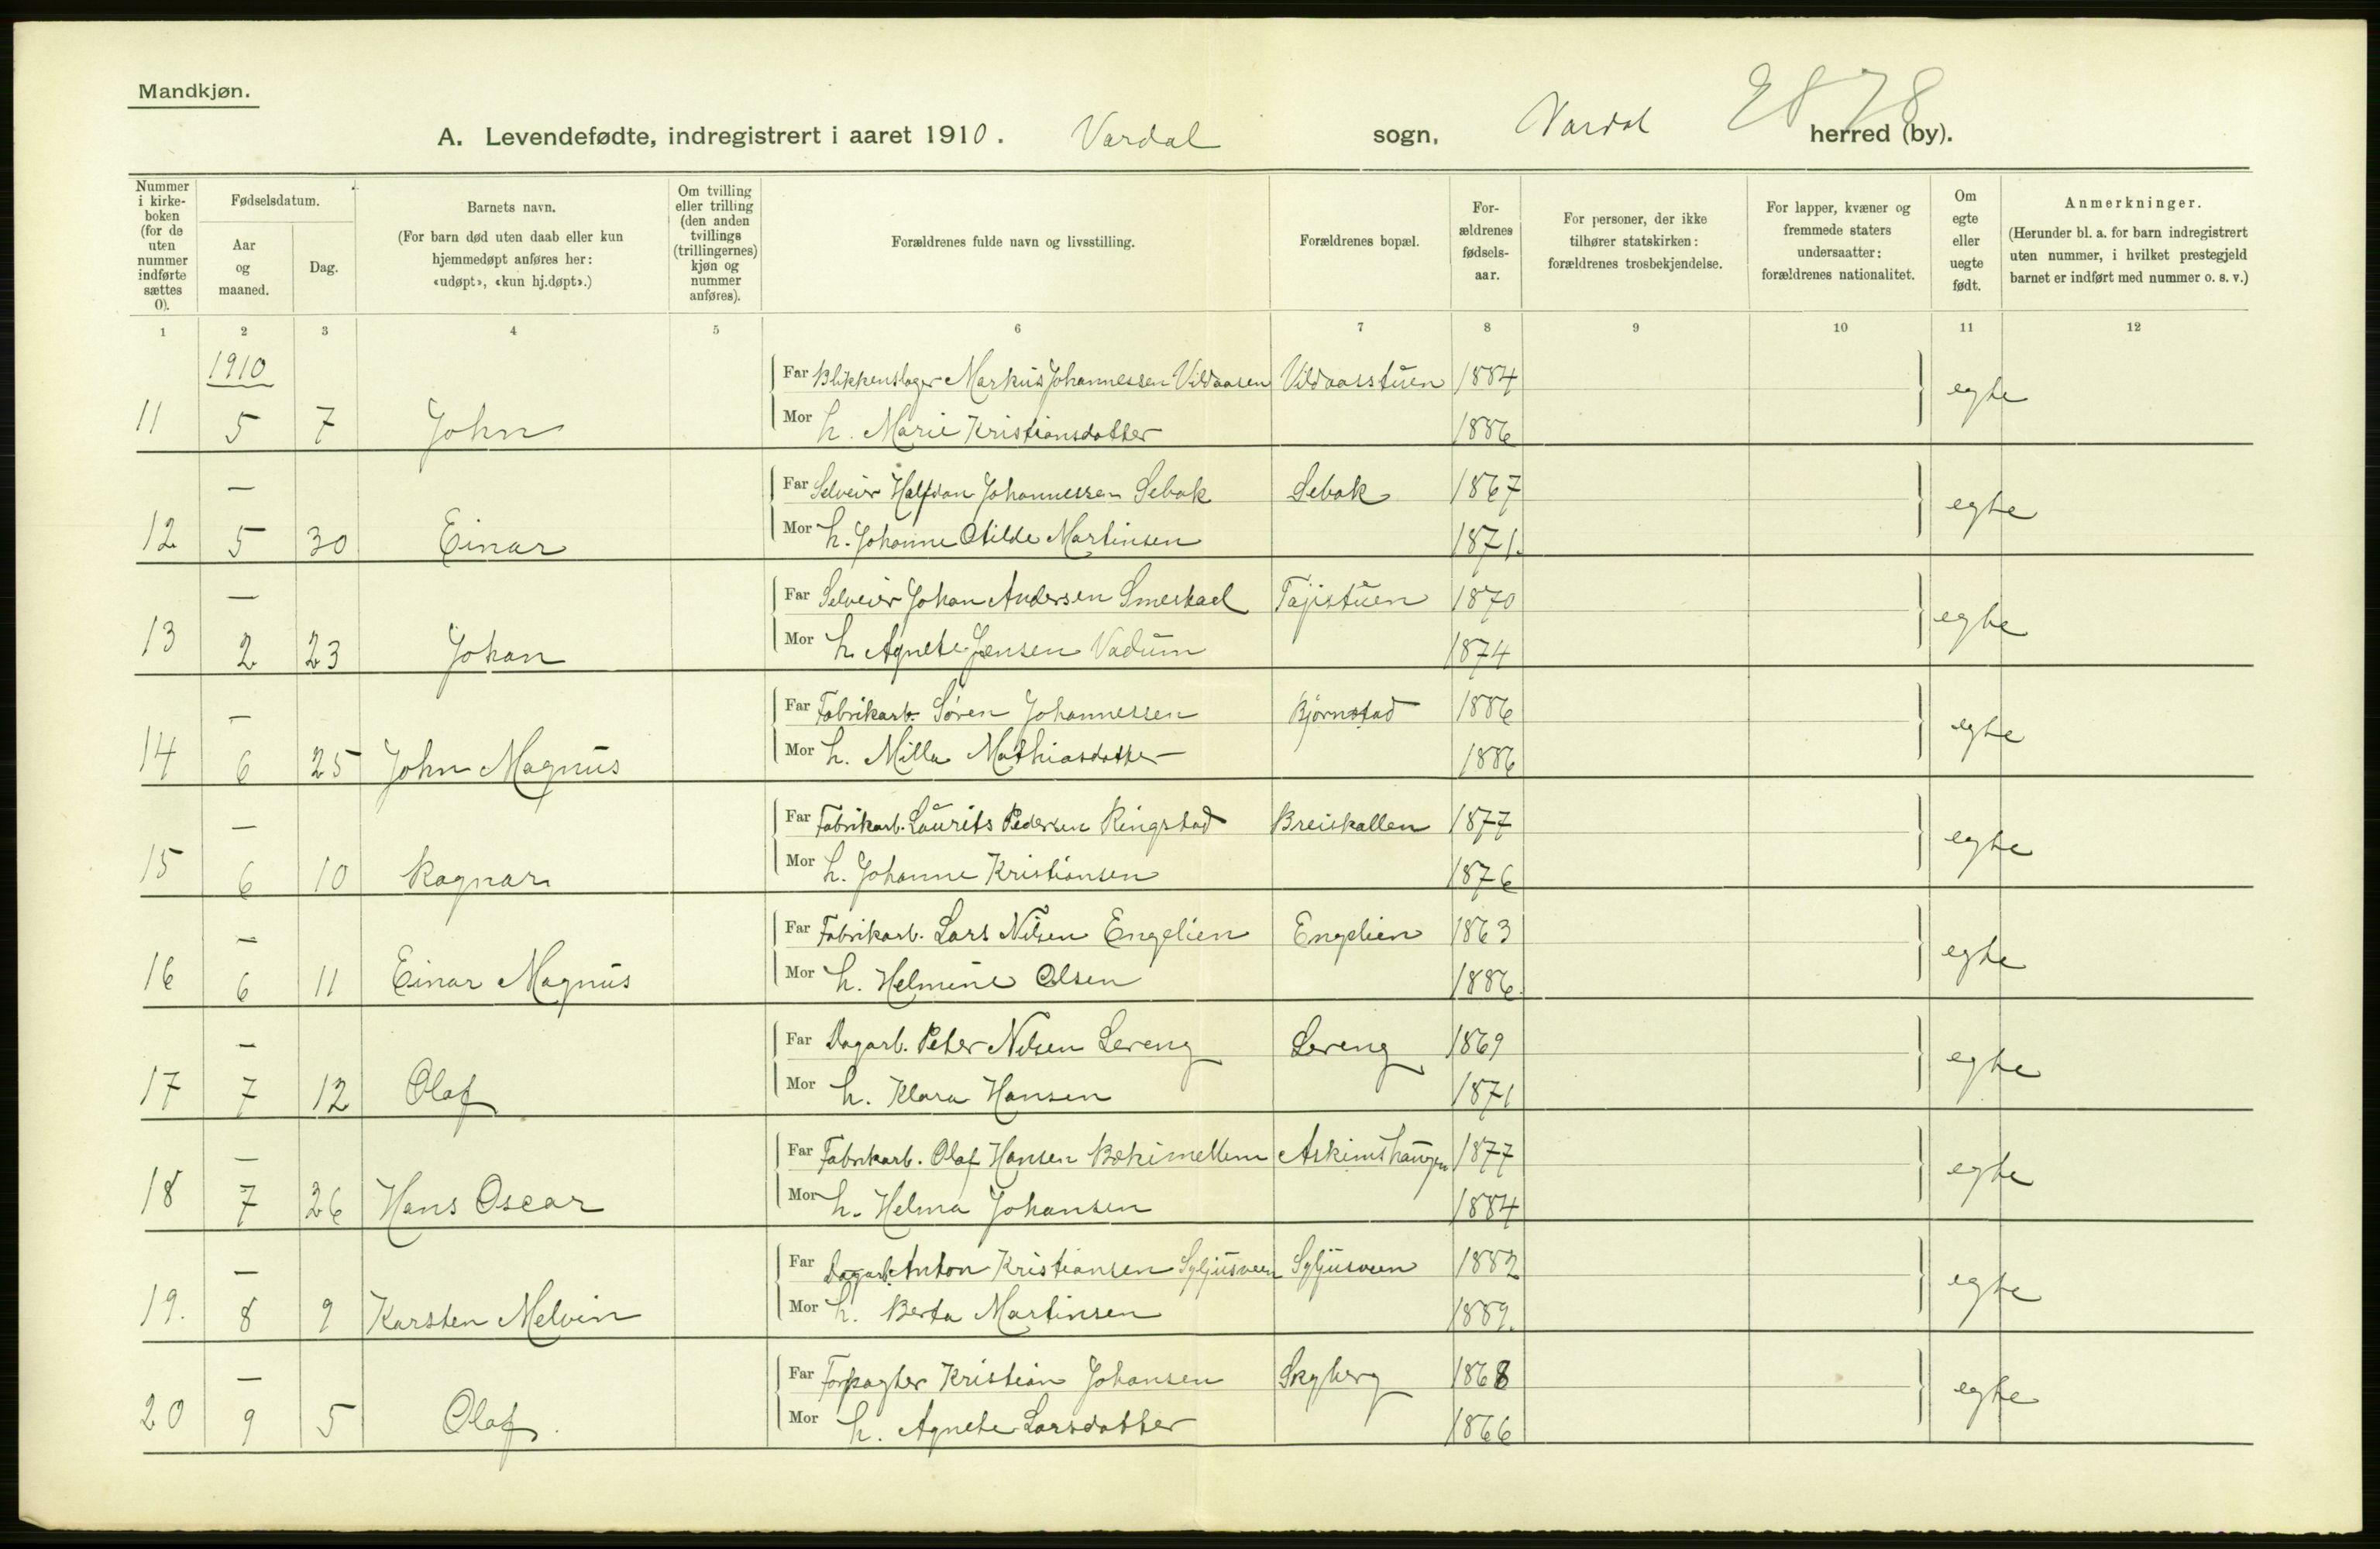 Mandkjøn.
2878
A. Levendefødte, indregistrert i aaret 1910. Vardal sogn, Vardal herred (by).
Nummer i kirke-boken (for de uten nummer indførte sættes 0).
Fødselsdatum.
Aar og maaned.
Dag.
Barnets navn.
(For barn død uten daab eller kun hjemmedøpt anføres her: «udøpt», «kun hj.døpt».)
Om tvilling eller trilling (den anden tvillings (trillingernes) kjøn og nummer anføres).
Forældrenes fulde navn og livsstilling.
Forældrenes bopæl.
For-ældrenes fødsels-aar.
For personer, der ikke tilhører statskirken: forældrenes trosbekjendelse.
For lapper, kvæner og fremmede staters undersaatter: forældrenes nationalitet.
Om egte eller uegte født.
Anmerkninger.
(Herunder bl. a. for barn indregistrert uten nummer, i hvilket prestegjeld barnet er indført med nummer o. s. v.)
1 2 3 4 5 6 7 8 9 10 11 12
1910
Far Blikkenslager Markus Johannessen Vildaasen Vildaasstuen 1884
11 5 7 John Mor h. Marie Kristiansdatter 1886 egte
— Far Selveier Halfdan Johannessen Sebak Sebak 1867
12 5 30 Einar Mor h. Johanne Otilde Martinsen 1871. egte
— Far Selveier Johan Andersen 1870
13 2 23 Johan Mor h. Agnete Jensen Vadum 1874 egte
— Far Fabrikarb. Søren Johannessen Bjørnstad 1886
14 6 25 John Magnus Mor h. Milla Mathiasdatter 1886 egte
— Far Fabrikarb. Laurits Pedersen Ringstad Breiskallen 1877
15 6 10 Ragnar Mor h. Johanne Kristiansen 1876 egte
— Far Fabrikarb. Lars Nilsen Engelien Engelien 1863
16 6 11 Einar Magnus Mor h. Helmine Olsen 1886. egte
— Far Dagarb. Peter Nilsen Lereng Lereng 1869
17 7 12 Olaf Mor h. Klara Hansen 1871 egte
— Far Fabrikarb. Olaf Hansen Askimshaugen 1877
18 7 26 Hans Oscar Mor h. Helma Johansen 1884 egte
— Far Dagarb. Anton Kristiansen Syljusveen Syljusveen 1882
19. 8 9 Karsten Melvin Mor h. Berta Martinsen 1889. egte
— Far Forpagter Kristian Johansen Skyberg 1868
20 9 5 Olaf. Mor h. Agnete Larsdatter 1866 egte